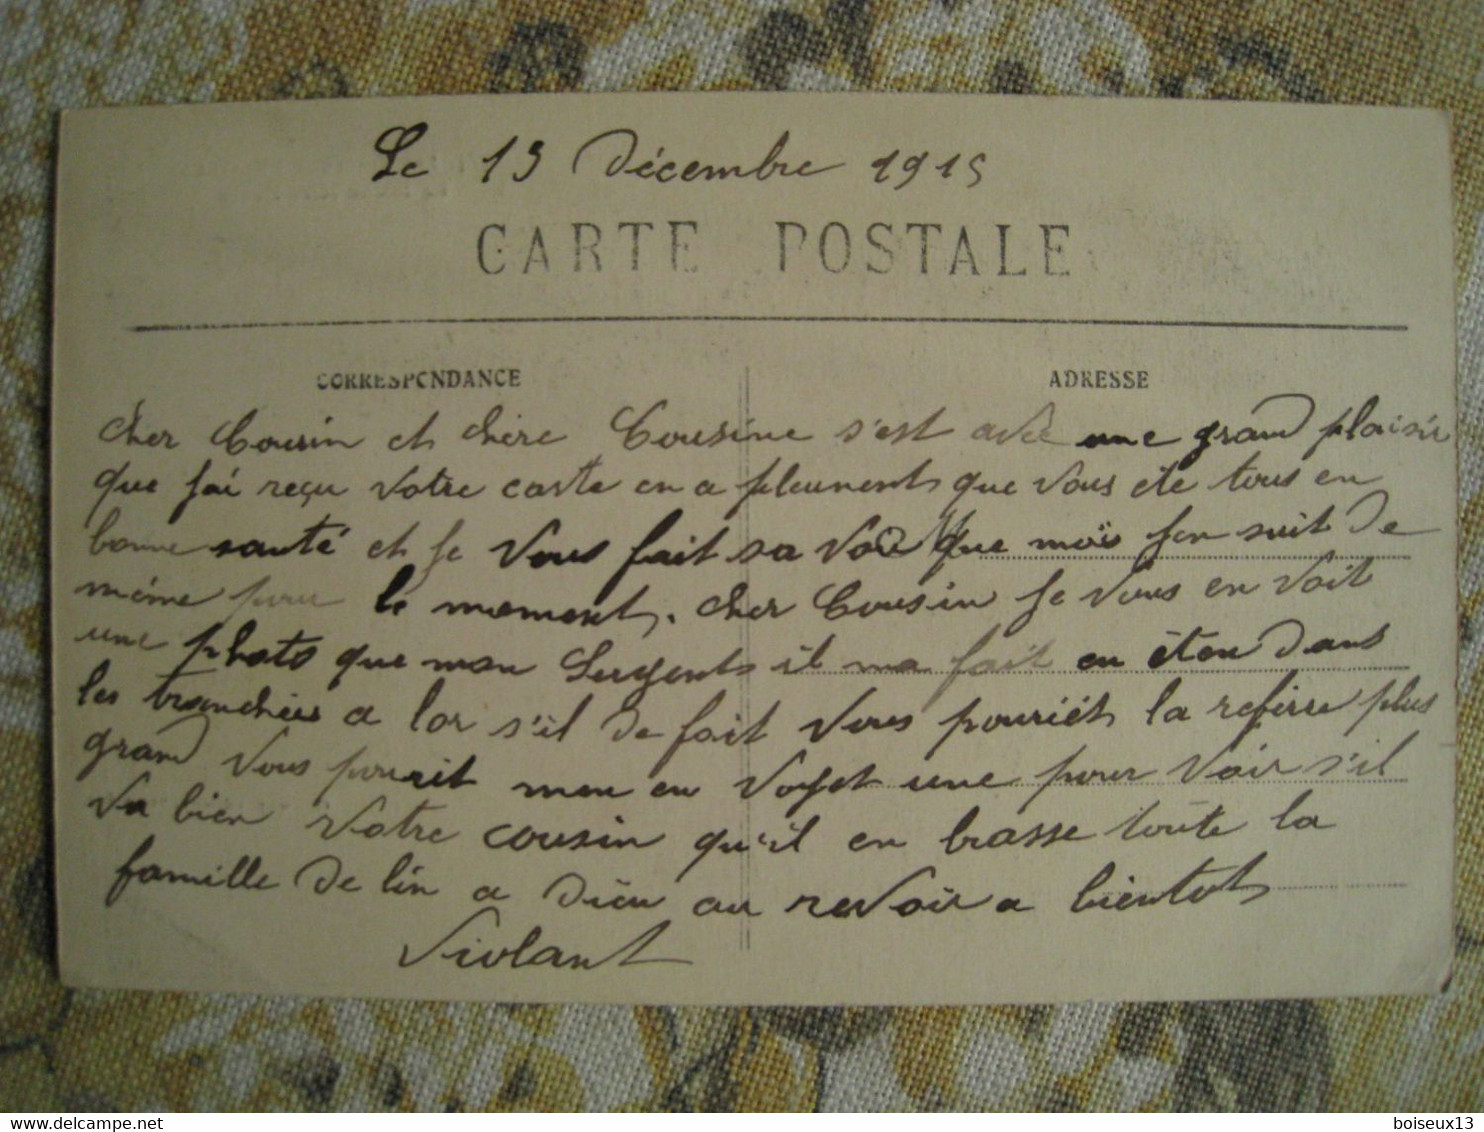 Le 13 Décembre 1915
CARTE POSTALE
CORRESPONDANCE
ADRESSE
cher Cousin et chère Cousine s'est avec une grand plaisir
que j'ai reçu votre carte en a pleunent que vous ète tous en
bonne santé et je vous fait sa voir que moi j'en suit de
même pour le moment. cher Cousin je vous en voit
une photo que mon Sergent il ma fait en éten dans
les tranchées a lor s'il de fait vous pouriét la refirre plus
grand vous pourit men en voyet une pour voir s'il
va bien votre cousin qu'il en brasse toute la
famille de lin a dieu au revoir a bientot
Violant
delcampe.net
boiseux13